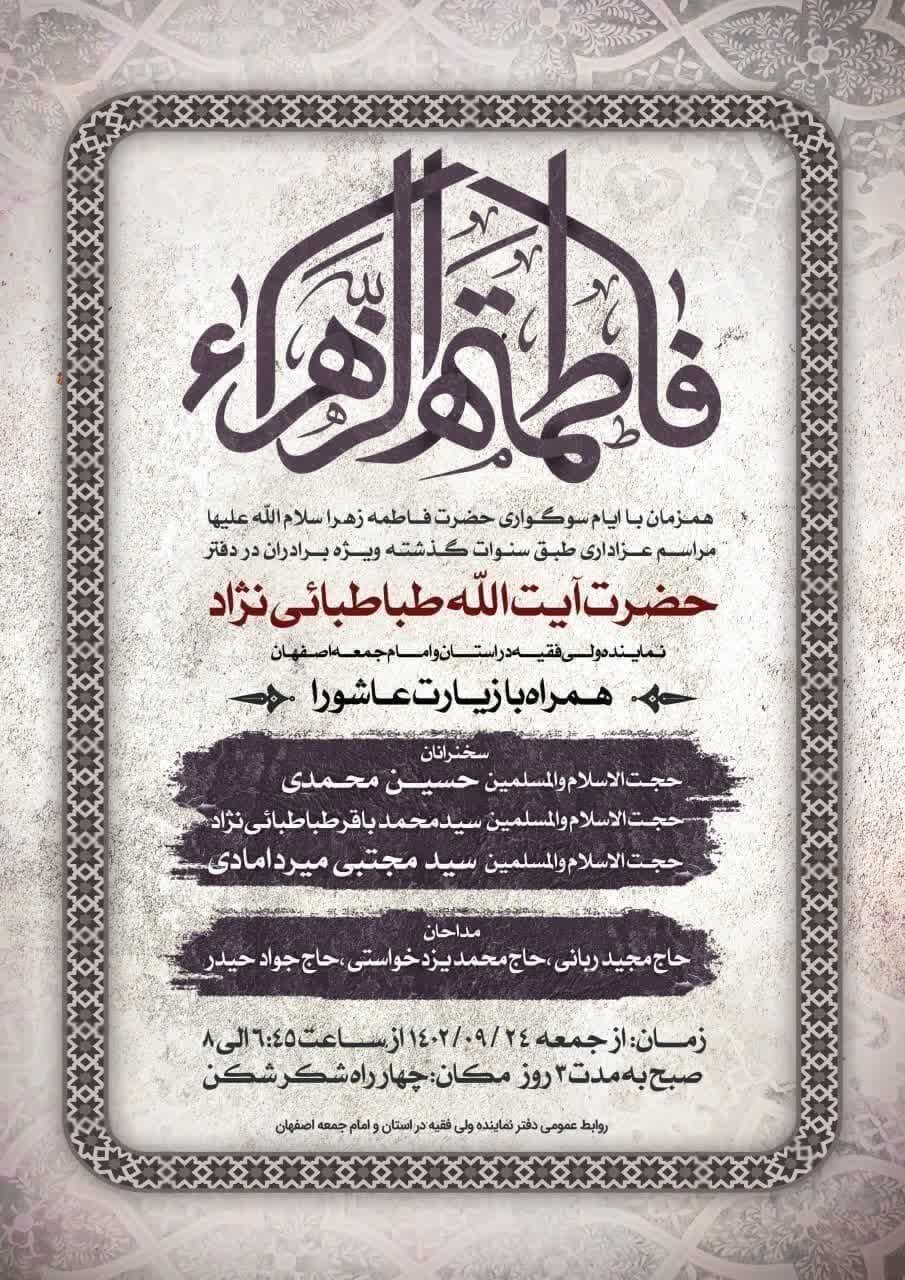 فاطمة الزهراء
همزمان با ایام سوگواری حضرت فاطمه زهرا سلام الله علیها
مراسم عزاداری طبق سنوات گذشته ویژه برادران در دفتر
حضرت آیت الله طباطبائی نژاد
نماینده ولی فقیه در استان و امام جمعه اصفهان
همراه با زیارت عاشورا
سخنرانان
حجت الاسلام والمسلمین حسین محمدی
حجت الاسلام والمسلمین سید محمد باقر طباطبائی نژاد
حجت الاسلام والمسلمین سید مجتبی میردامادی
مداحان
حاج مجید ربانی ،حاج محمد یزدخواستی ،حاج جواد حیدر
زمان: از جمعه ۲۴ /۱۴۰۲/۰۹ از ساعت ۶:۴۵ الی ۸
صبح به مدت ۳ روز مکان: چهار راه شکر شکن
روابط عمومی دفتر نماینده ولی فقیه در استان و امام جمعه اصفهان